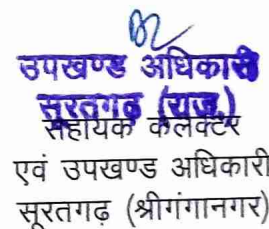 उपखण्ड अधिकारी
सूरतगढ़ (राज.)
सहायक कलेक्टर
एवं उपखण्ड अधिकारी
सूरतगढ़ (श्रीगंगानगर)